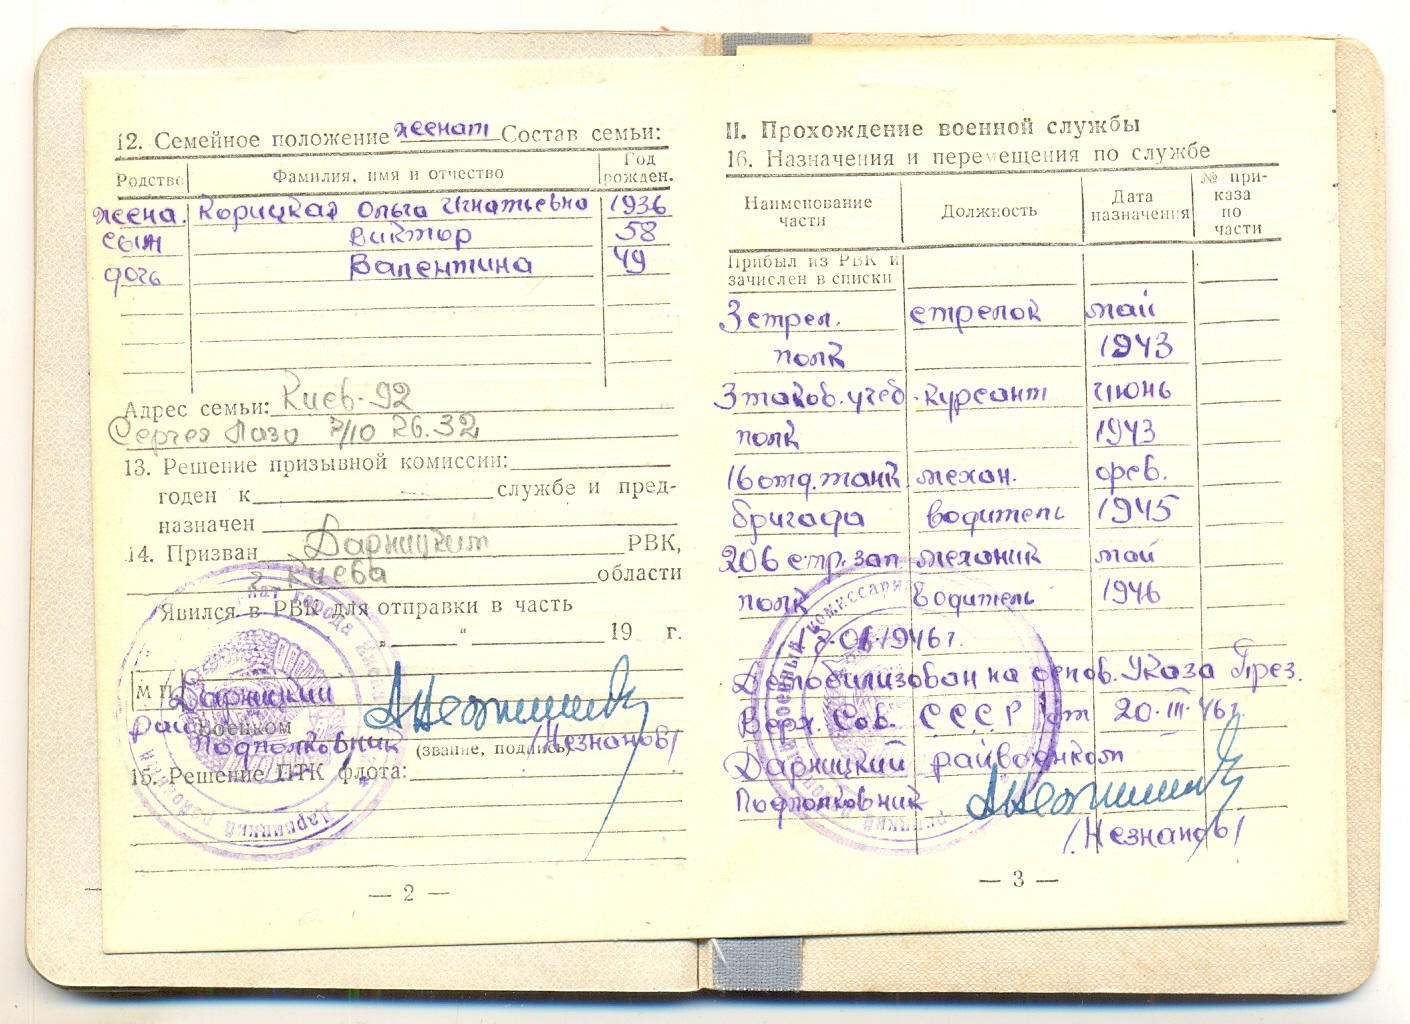 12. Семейное положение женат Состав семьи:
Родство Фамилия, имя и отчество Год рожден.
жена. Корицкая Ольга Игнатьевна 1936
сын Виктор 58
дочь Валентина 49
Адрес семьи: Киев-92
Сергея Лазо 7/10 26.32
13. Решение призывной комиссии:
годен к службе и пред-
назначен
14. Призван Дарницким РВК,
г. Киева области
Явился в РВК для отправки в часть
„ “ 19 г.
М П Дарницкий
рай Военком
Подполковник (звание, подпись) /Незнанов/
15. Решение ПТК флота:
— 2 —
II. Прохождение военной службы
16. Назначения и перемещения по службе
Наименование части Должность Дата назначения № при-каза по части
Прибыл из РВК и
зачислен в списки
3 стрел. стрелок май
полк 1943
3 танков. учеб. курсант июнь
полк 1943
16 отд. танк механ. фев.
бригада водитель 1945
206 стр. зап механик май
полк водитель 1946
.06.1946 г.
Демобилизован на основ. Указа През.
Верх. Сов. СССР от 20.III.46 г.
Дарницкий райвоенком
Подполковник
/Незнанов/
— 3 —